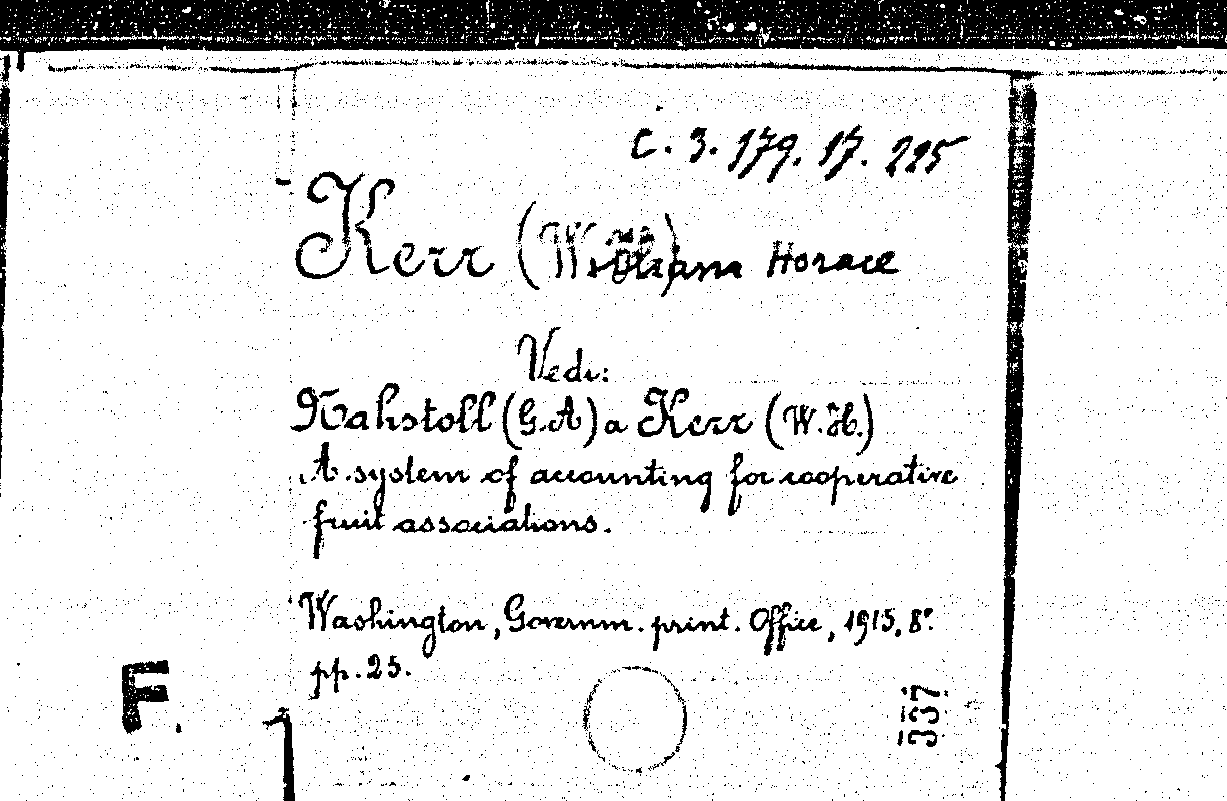 C. 3. 179. 17. 225
Kerr (William Horace
Vedi:
Nahstoll (G.A) a Kerr (W.H.)
A system of accounting for cooperative
fruit associations.
Washington, Governm. print. Office, 1915, 8º.
pp. 25.
F.
337